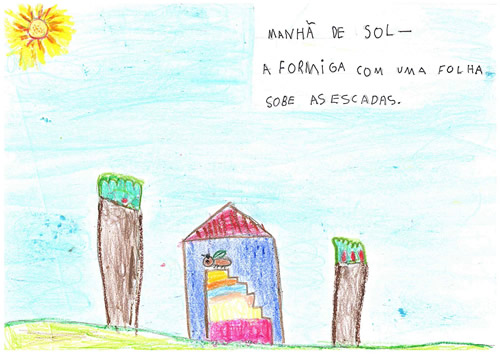 MANHÃ DE SOL —
A FORMIGA COM UMA FOLHA
SOBE AS ESCADAS.